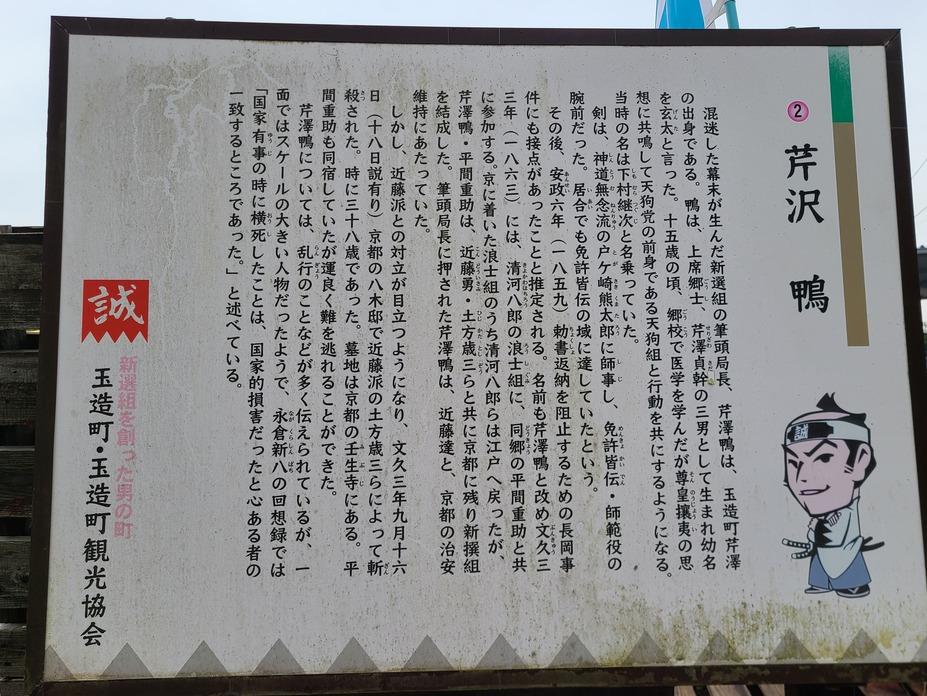 ②
芹沢 鴨
混迷した幕末が生んだ新選組の筆頭局長、芹澤鴨は、玉造町芹澤
の出身である。鴨は、上席郷士、芹澤貞幹の三男として生まれ幼名
を玄太と言った。十五歳の頃、郷校で医学を学んだが尊皇攘夷の思
想に共鳴して天狗党の前身である天狗組と行動を共にするようになる。
当時の名は下村継次と名乗っていた。
剣は、神道無念流の戸ケ崎熊太郎に師事し、免許皆伝・師範役の
腕前だった。居合でも免許皆伝の域に達していたという。
その後、安政六年(一八五九)勅書返納を阻止するための長岡事
件にも接点があったことと推定される。名前も芹澤鴨と改め文久三
三年(一八六三)には、清河八郎の浪士組に、同郷の平間重助と共
に参加する。京に着いた浪士組のうち清河八郎らは江戸へ戻ったが、
芹澤鴨・平間重助は、近藤勇・土方歳三らと共に京都に残り新撰組
を結成した。筆頭局長に押された芹澤鴨は、近藤達と、京都の治安
維持にあたっていた。
しかし、近藤派との対立が目立つようになり、文久三年九月十六
日(十八日説有り)京都の八木邸で近藤派の土方歳三らによって斬
殺された。時に三十八歳であった。墓地は京都の壬生寺にある。平
間重助も同宿していたが運良く難を逃れることができた。
芹澤鴨については、乱行のことなどが多く伝えられているが、一
面ではスケールの大きい人物だったようで、永倉新八の回想録では
「国家有事の時に横死したことは、国家的損害だったと心ある者の
一致するところであった。」と述べている。
誠
誠
新選組を創った男の町
玉造町・玉造町観光協会